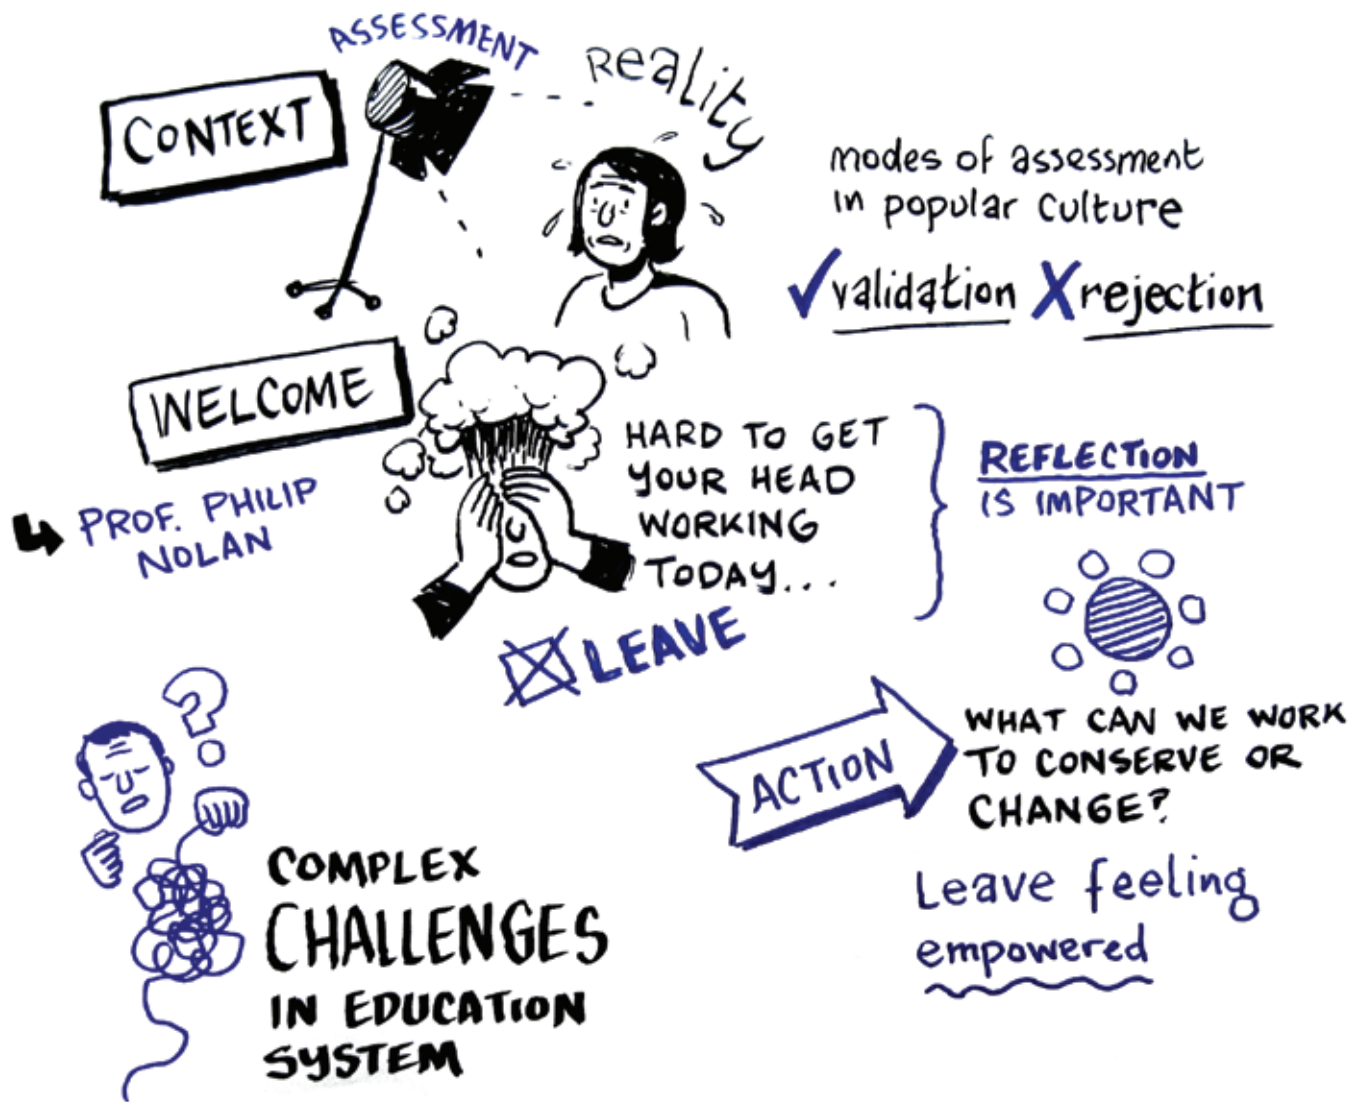 ASSESSMENT
REALITY
CONTEXT
modes of assessment
in popular culture
✓validation X rejection
WELCOME
PROF. PHILIP
NOLAN
HARD TO GET
YOUR HEAD
WORKING
TODAY...
LEAVE
REFLECTION
IS IMPORTANT
?
ACTION
WHAT CAN WE WORK
TO CONSERVE OR
CHANGE?
Leave feeling
empowered
COMPLEX
CHALLENGES
IN EDUCATION
SYSTEM